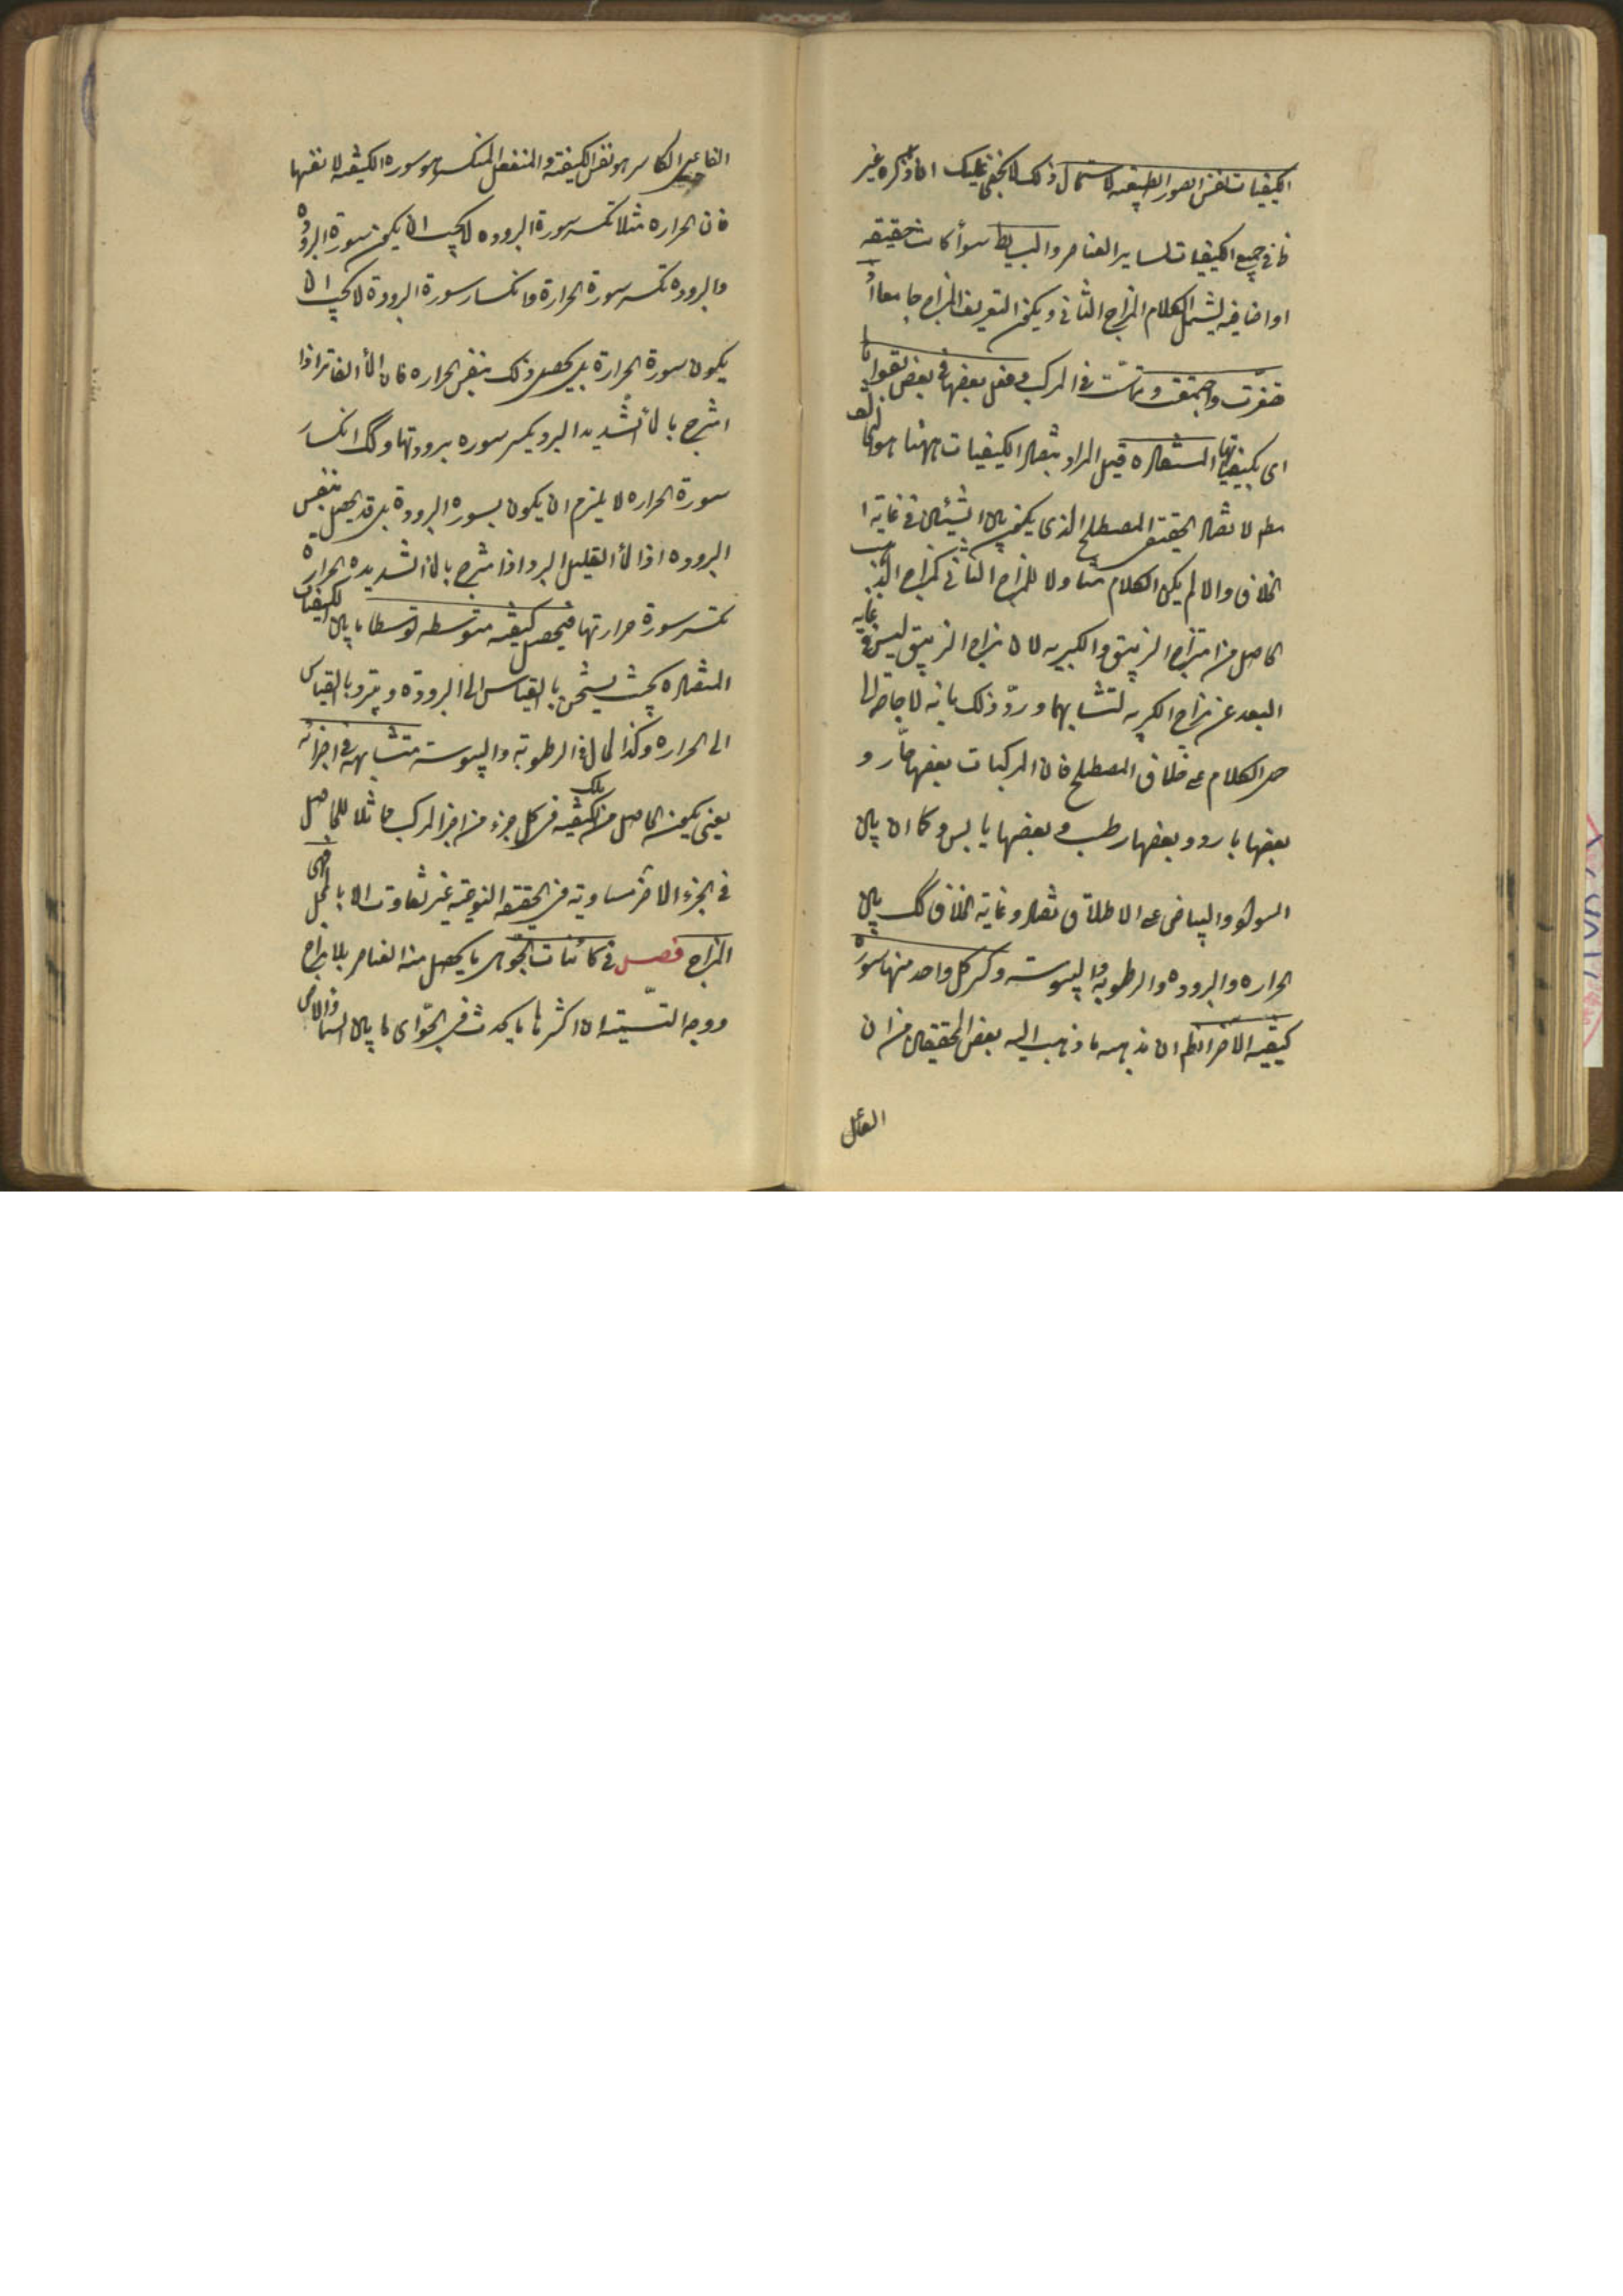 الكيفيات نفس الصور الطبيعية لاستعمال ذلك لا يخفى عليك ان ما ذكره غير
في جميع الكيفيات لساير العناصر والبسايط سوأ كانت حقيقيه
او اضافيه ليشمل الكلام المزاج الثاني ويكون التعريف للمزاج جامعا اذا
تصغرت واجتمعت وتماست في المركب وفعل بعضها في بعض بقواها
اى بكيفياتها المتضاده قيل المراد بتضاد الكيفيات ههنا هو التخالف
مطم لا تضاد الحقيقي المصطلح الذى يكون بين الشيئين في غاية
الخلاف والا لم يكن الكلام متناولا للمزاج الثاني كمزاج الذهب
الحاصل من امتزاج الزيبق والكبريت لان مزاج الزيبق ليس في غايه
البعد عن مزاج الكبريت لتشابهها وردّ ذلك بانه لا حاجة الى
حمل الكلام على خلاف المصطلح فان المركبات بعضها حارّ و
بعضها بارد وبعضها رطب وبعضها يابس وكما ان بين
السواد والبياض على الاطلاق تضاد وغاية الخلاف كك بين
الحراره والبروده والرطوبة واليبوسة وكسر كل واحد منها سورة
كيفيه الاخر الظم ان مذهبه ما ذهب اليه بعض المحققين من ان
الفاعل
الفاعل الكاسر هو نفس الكيفية والمنفعل المنكسر هو سورة الكيفيه لا نفسها
فان الحراره مثلا تكسر سورة البروده لا يجب ان يكون سورة البروده
والبروده تكسر سورة الحرارة وانكسار سورة البرودة لا يجب ان
يكون سورة الحرارة بل يحصل ذلك بنفس الحراره فان المأ الفاتر اذا
امتزج بالمأ الشديد البرد يكسر سوره برودتها وكك انكسار
سورة الحراره لا يلزم ان يكون بسوره البرودة بل قد يحصل بنفس
البروده اذ المأ القليل البرد اذا مزج بالمأ الشديد الحرارة
تكسر سورة حرارتها فيحصل كيفيه متوسطه توسطا ما بين الكيفيات
المتضاده بحيث يستسخن بالقياس الى البرودة ويتبرد بالقياس
الى الحراره وكذا الحال في الرطوبة واليبوسة متشابهة في اجزائه
يعنى يكون الحاصل من تلك الكيفيه في كل جزء من اجزا المركب مماثلا للحاصل
في الجزء الاخر مساويه في الحقيقه النوعيه غير تفاوت الا بالمحل وهى
المزاج فصل في كائنات الجو اى ما يحصل من العناصر بلا مزاج
ووجه التسمية ان اكثرها ما يحدث في الجوّ اى ما بين السما والارض